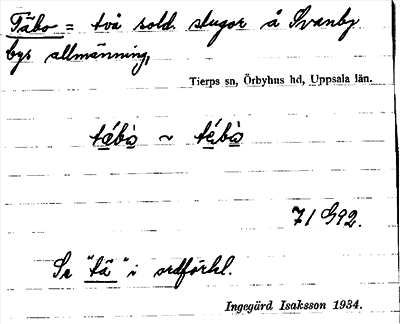 Täbo = två sold. stugor å Svanby
bys allmänning,
Tierps sn, Örbyhus hd, Uppsala län.
tǽbò ~ té̱bò
71 G92.
Se "tä" i ordförkl.
Ingegärd Isaksson 1934.